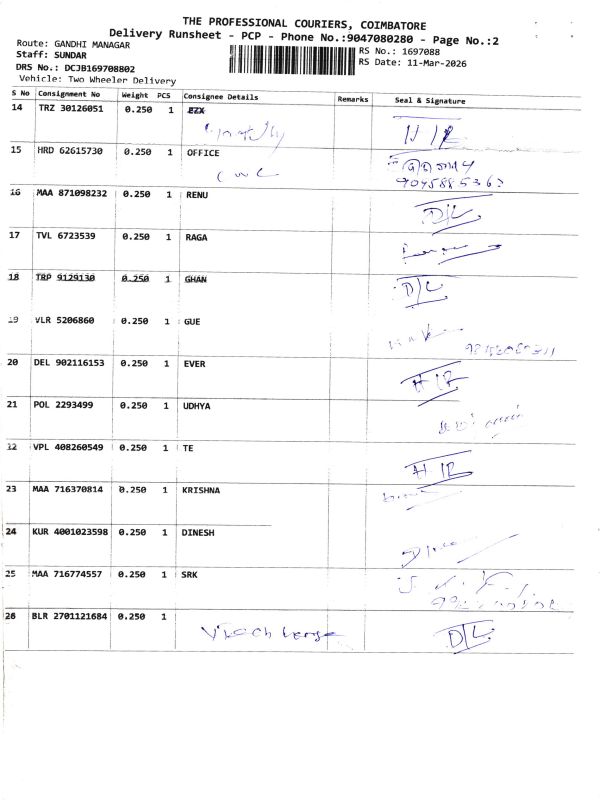 THE PROFESSIONAL COURIERS, COIMBATORE
Delivery Runsheet - PCP - Phone No.:9047080280 - Page No.:2
Route: GANDHI MANAGAR
Staff: SUNDAR
DRS No.: DCJB169708802
Vehicle: Two Wheeler Delivery
RS No.: 1697088
RS Date: 11-Mar-2026
S No Consignment No Weight PCS Consignee Details Remarks Seal & Signature
14 TRZ 30126051 0.250 1 EZX
H/R
15 HRD 62615730 0.250 1 OFFICE
16 MAA 871098232 0.250 1 RENU
D/L
17 TVL 6723539 0.250 1 RAGA
18 TRP 9129130 0.250 1 GHAN
D/L
19 VLR 5206860 0.250 1 GUE
20 DEL 902116153 0.250 1 EVER
H/R
21 POL 2293499 0.250 1 UDHYA
22 VPL 408260549 0.250 1 TE
H/R
23 MAA 716370814 0.250 1 KRISHNA
24 KUR 4001023598 0.250 1 DINESH
25 MAA 716774557 0.250 1 SRK
26 BLR 2701121684 0.250 1
D/L